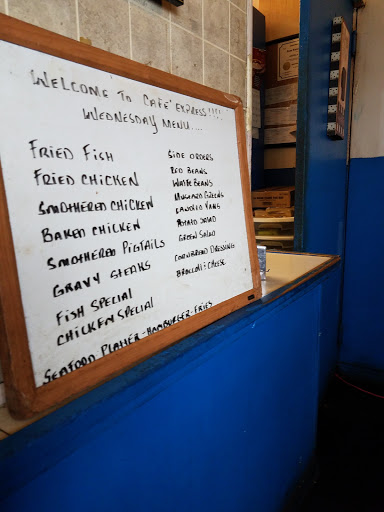 Welcome To Cafe' Express!!!!
Wednesday Menu....
Fried Fish
Fried Chicken
Smothered Chicken
Baked Chicken
Smothered Pigtails
Gravy Steaks
Fish Special
Chicken Special
Seafood Platter-Hamburger-Fries
Side Orders
Red Beans
White Beans
Mustard Greens
Candied Yams
Potato Salad
Green Salad
Cornbread Dressing
Broccoli & Cheese